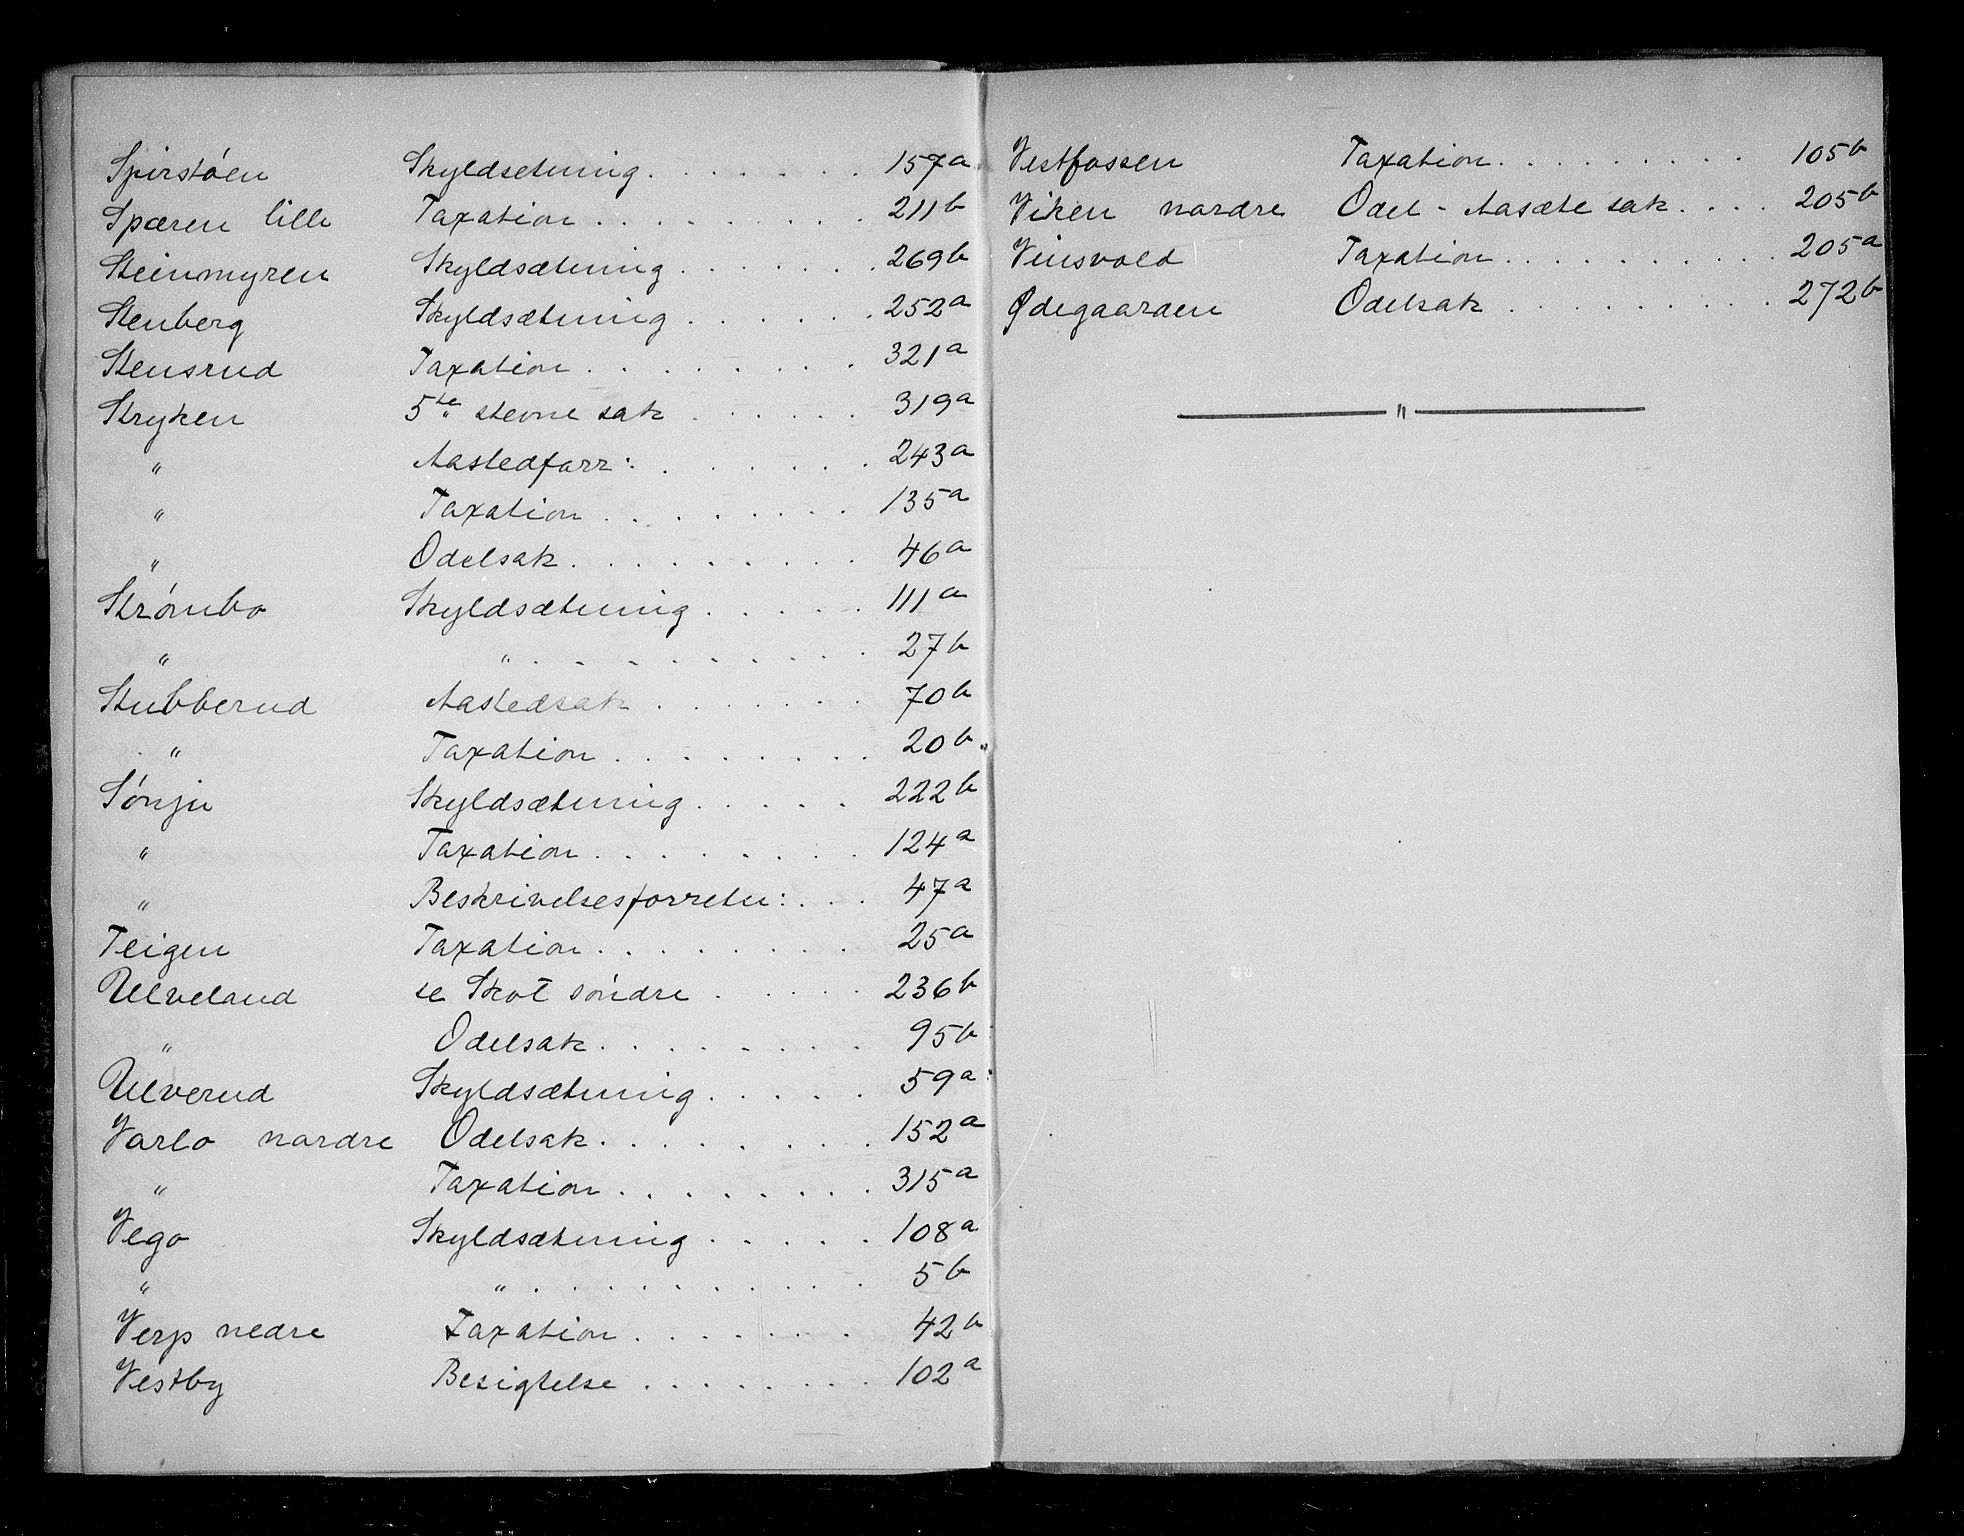 Spirstøen Skyldsetning. . . . . . . 157a
Spæren lille Taxation . . . . . . . . 211b
Steinmyren Skyldsætning . . . . . . . 269b
Stenberg Skyldsætning . . . . . . 252a
Stensrud Taxation . . . . . . . . 321a
Stryken 5te stevne sak . . . . . 319a
" Aastedforr: . . . . . . . 243a
" Taxation . . . . . . . . 135a
" Odelsak . . . . . . . . 46a
Strømbo Skyldsætning . . . . . 111a
" " . . . . . . . . . 27b
Stubberud Aastedsak . . . . . . 70b
" Taxation . . . . . . . . 20b
Sønju Skyldsætning . . . . . 222b
" Taxation . . . . . . . . 124a
" Beskrivelsesforretn: . . . 47a
Teigen Taxation . . . . . . . . 25a
Ulveland se Skot søndre . . . . . 236b
" Odelsak . . . . . . . . 95b
Ulverud Skyldsætning . . . . . 59a
Varlo nordre Odelsak . . . . . . . . 152a
" Taxation . . . . . . . . 315a
Vego Skyldsætning . . . . . 108a
" " . . . . . . . . . . 5b
Verp nedre Taxation . . . . . . . 42b
Vestby Besigtelse . . . . . . . . 102a
Vestfossen Taxation . . . . . . . . . . 105b
Viken nordre Odel - Aasæte sak . . . . 205b
Vinsvold Taxation . . . . . . . . . . . 205a
Ødegaarden Odelsak . . . . . . . . . 272b
"